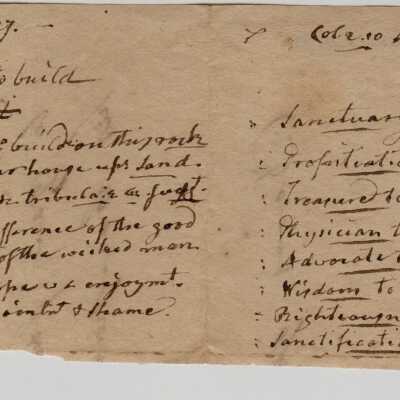 7.
o build
it
build on this rock
house upº sand.
tribula: &
fference of the good
of the wicked man.
ope enjoymt.
ointmt & shame.
Col 2.10
: Sanctuary
: Propitiatio
: Treasured to
: Physician t
: Advocate t
: Wisdom to
: Righteousn
: Sanctificatio